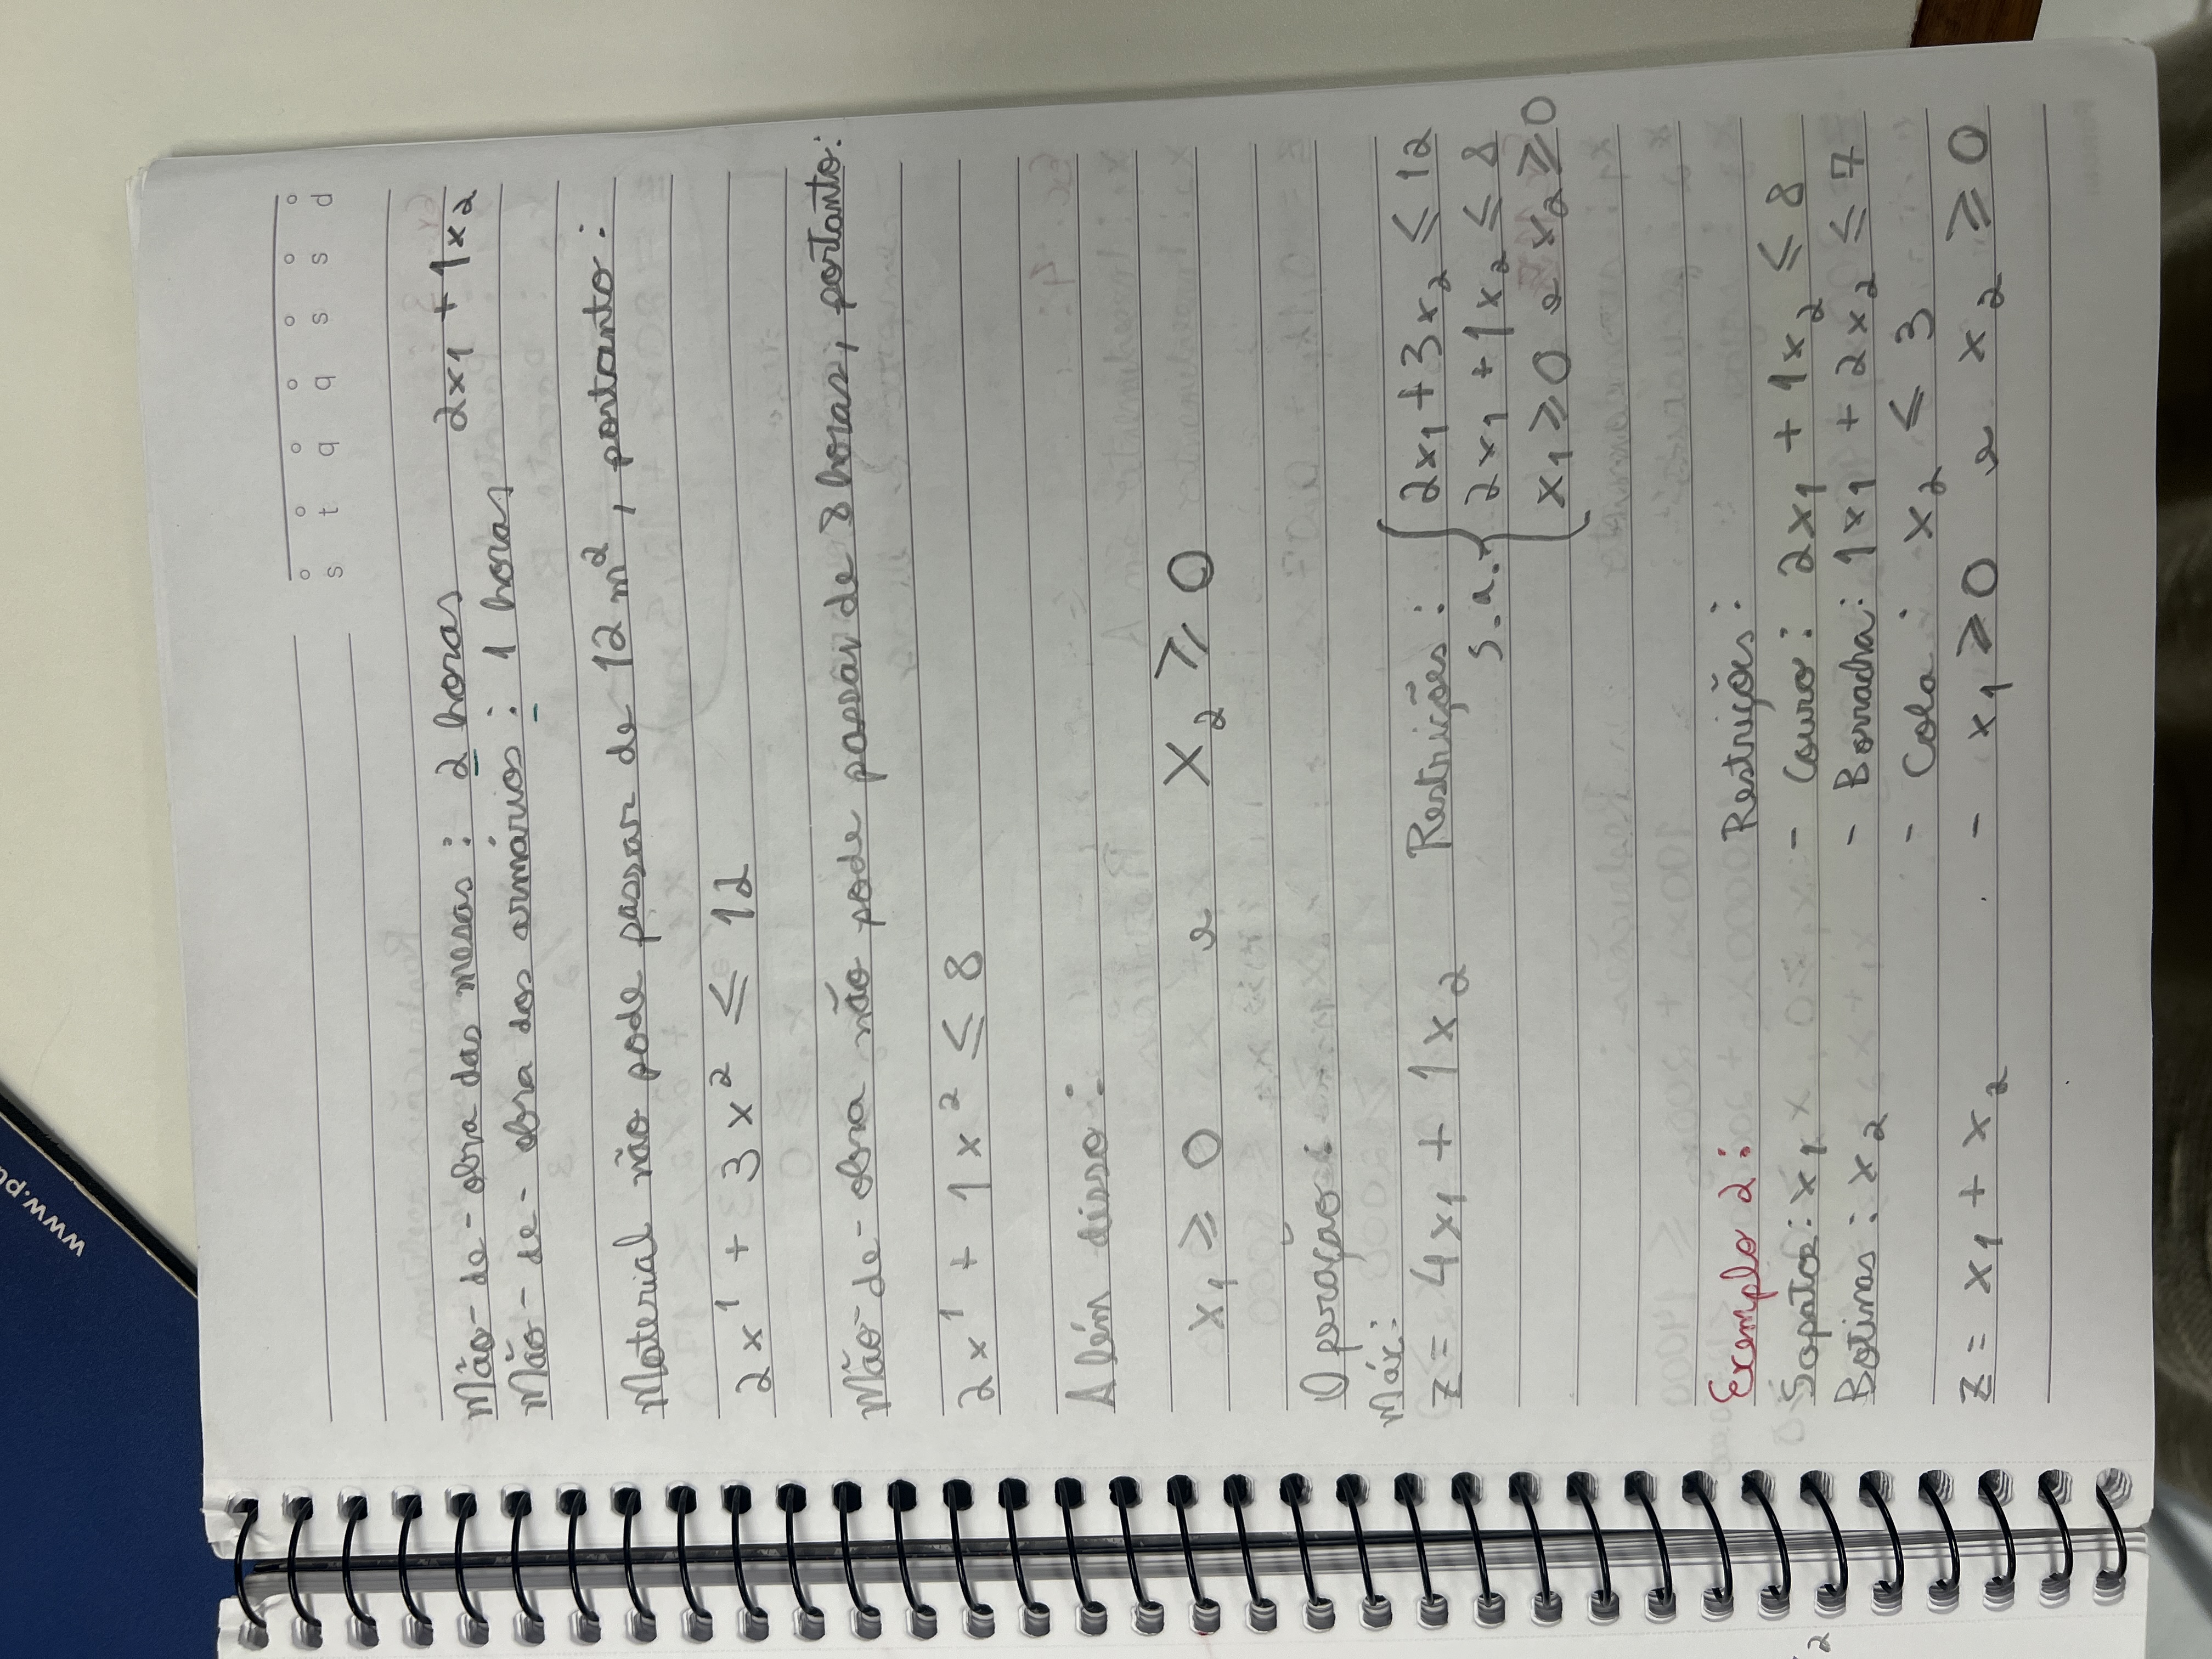 www.pu
s t q q s s d
Mão-de-obra das mesas: 2 horas 2x₁ + 1x₂
Mão-de-obra dos armários: 1 horas
Material não pode passar de 12 m², portanto:
2x¹ + 3x² ≤ 12
Mão-de-obra não pode passar de 8 horas, portanto:
2x¹ + 1x² ≤ 8
Além disso:
x₁ ≥ 0 e x₂ ≥ 0
Operação:
Máx:
z = 4x₁ + 1x₂ Restrições: 2x₁ + 3x₂ ≤ 12
s.a. 2x₁ + 1x₂ ≤ 8
x₁ ≥ 0 e x₂ ≥ 0
Exemplo 2: Restrições:
Sapatos: x₁ - Couro: 2x₁ + 1x₂ ≤ 8
Botinas: x₂ - Borracha: 1x₁ + 2x₂ ≤ 7
- Cola: x₂ ≤ 3
z = x₁ + x₂ - x₁ ≥ 0 e x₂ ≥ 0